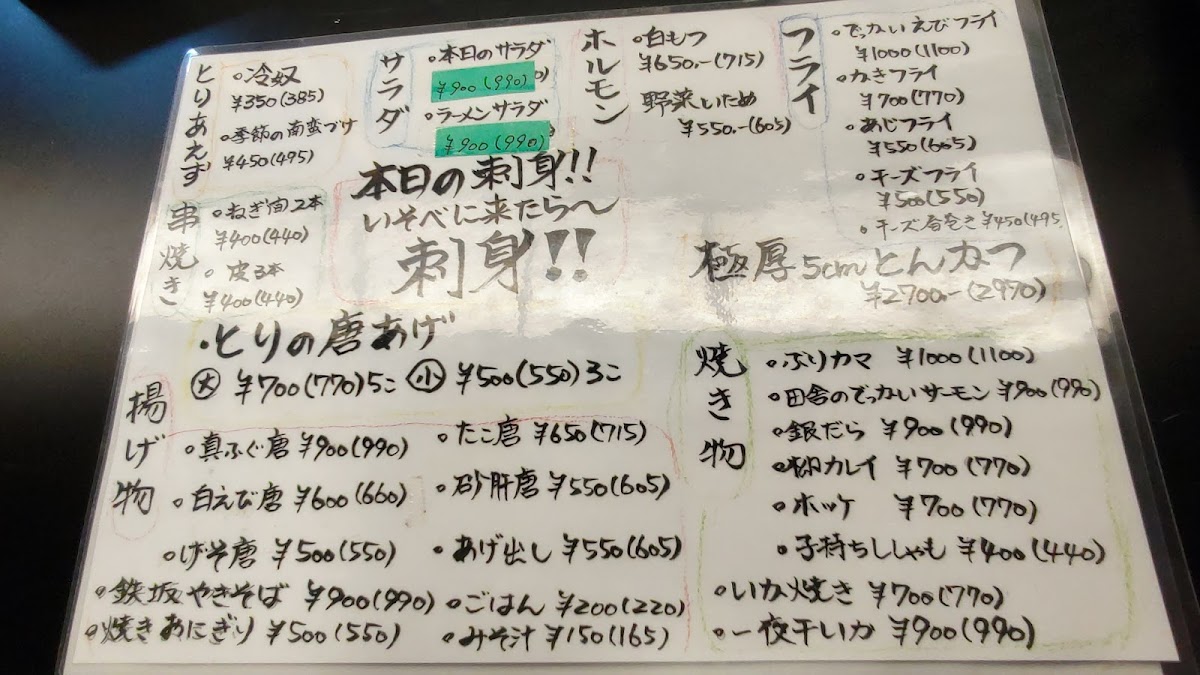 とりあえず
・冷奴
¥350(385)
・季節の南蛮づけ
¥450(495)
サラダ
・本日のサラダ
¥900(990)
・ラーメンサラダ
¥900(990)
ホルモン
・白もつ
¥650.-(715)
野菜いため
¥550.-(605)
フライ
・でっかいえびフライ
¥1000(1100)
・かきフライ
¥700(770)
・あじフライ
¥550(605)
・チーズフライ
¥500(550)
・チーズ春巻き ¥450(495
串焼き
・ねぎ間2本
¥400(440)
・皮3本
¥400(440)
本日の刺身!!
いそべに来たら〜
刺身!!
極厚5cmとんかつ
¥2700.-(2970)
・とりの唐あげ
大 ¥700(770)5こ 小 ¥500(550)3こ
揚げ物
・真ふぐ唐 ¥900(990)
・たこ唐 ¥650(715)
・白えび唐 ¥600(660)
・砂肝唐 ¥550(605)
・げそ唐 ¥500(550)
・あげ出し ¥550(605)
・鉄坂やきそば ¥900(990)
・ごはん ¥200(220)
・焼きおにぎり ¥500(550)
・みそ汁 ¥150(165)
焼き物
・ぶりカマ ¥1000(1100)
・田舎のでっかいサーモン ¥900(990)
・銀だら ¥900(990)
・柳カレイ ¥700(770)
・ホッケ ¥700(770)
・子持ちししゃも ¥400(440)
・いか焼き ¥700(770)
・一夜干いか ¥900(990)